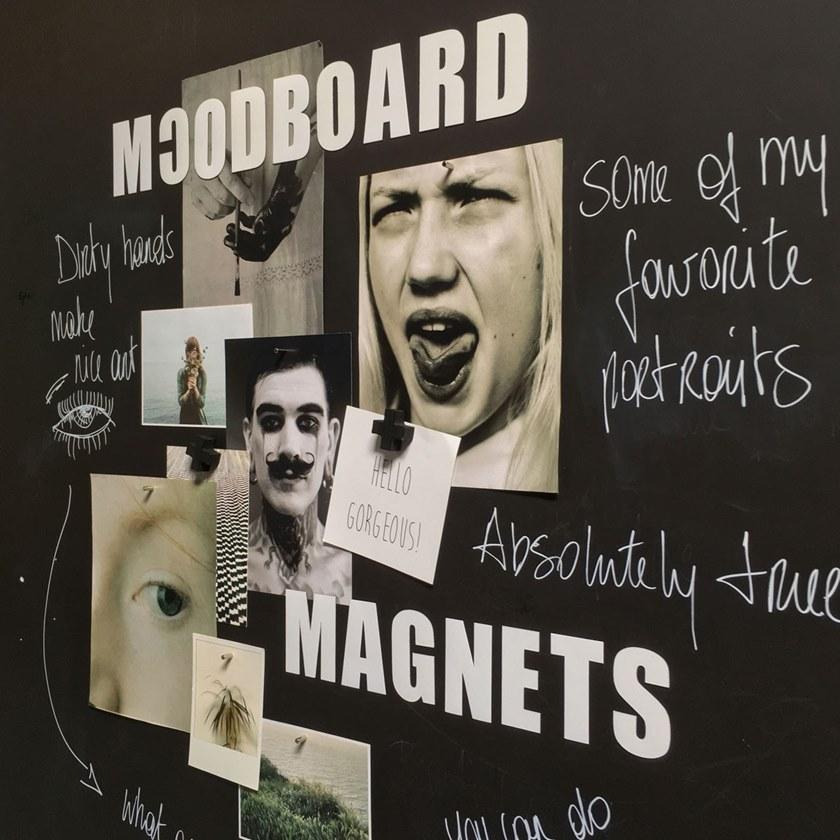 MOODBOARD
some of my
favorite
portraits
Dirty hands
make
nice art
HELLO
GORGEOUS!
Absolutely true
MAGNETS
what
you can do